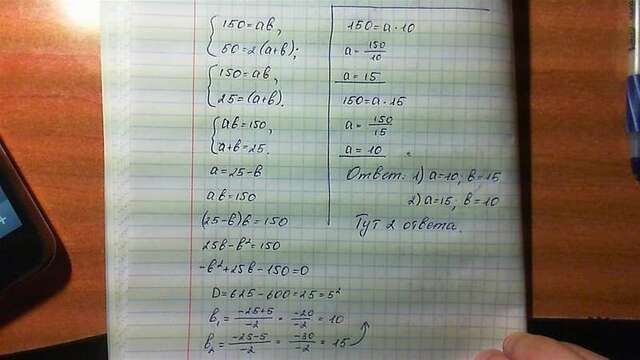 { 150 = ab,
50 = 2(a+b);
{ 150 = ab,
25 = (a+b).
{ ab = 150,
a+b = 25.
a = 25 - b
ab = 150
(25-b)b = 150
25b - b² = 150
-b² + 25b - 150 = 0
D = 625 - 600 = 25 = 5²
b₁ = \frac{-25+5}{-2} = \frac{-20}{-2} = 10
b₂ = \frac{-25-5}{-2} = \frac{-30}{-2} = 15
150 = a·10
a = \frac{150}{10}
a = 15
150 = a·15
a = \frac{150}{15}
a = 10
Ответ: 1) a=10; b=15
2) a=15; b=10
Тут 2 ответа.